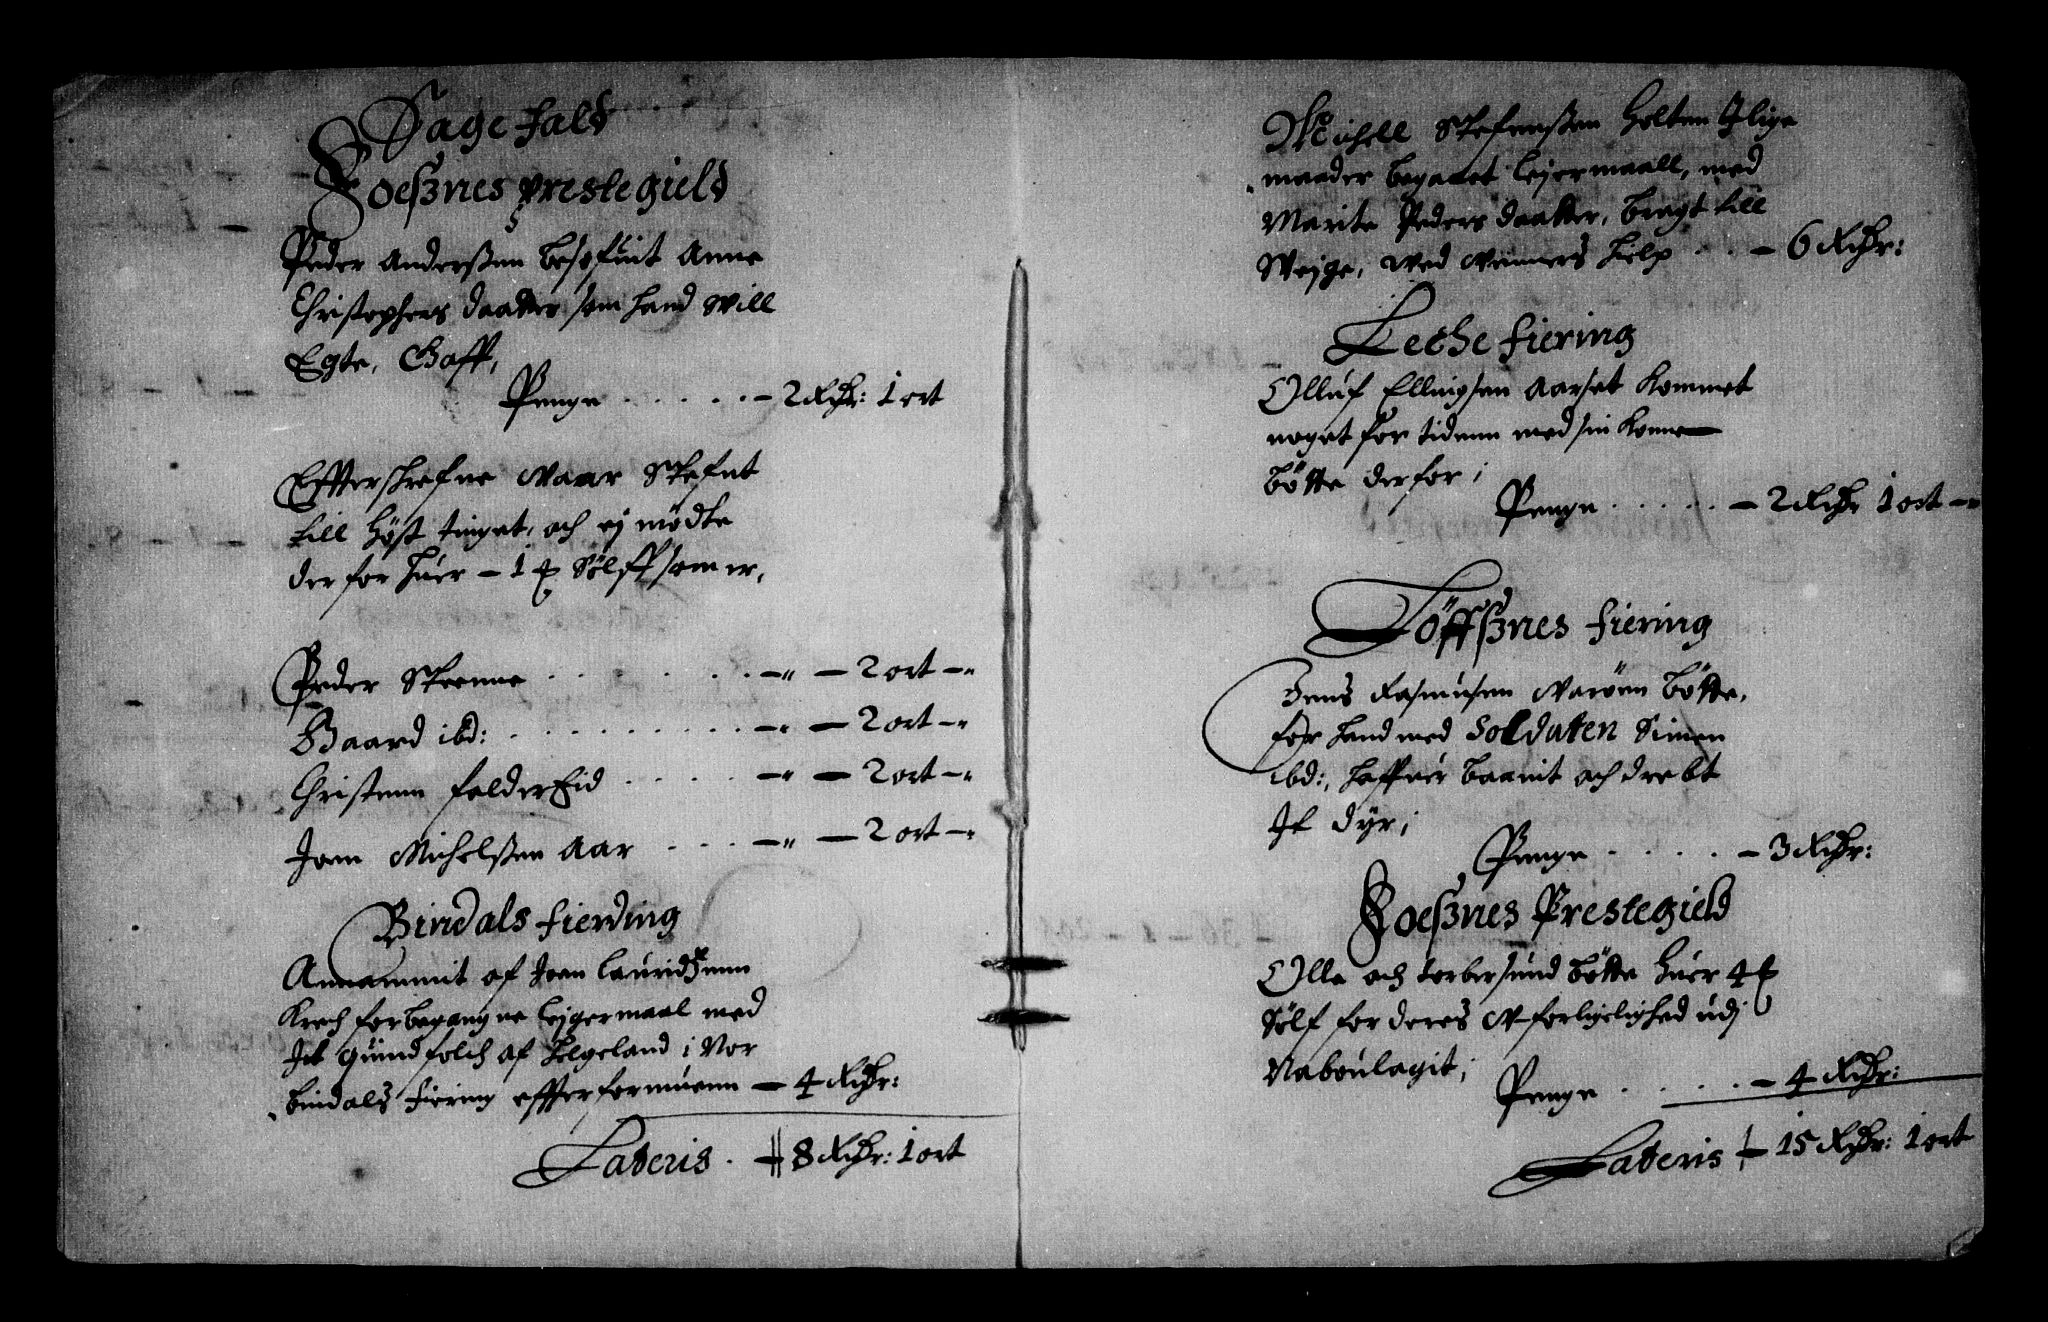 Sagefald
Foesznes prestegield
Peder Anderszen besofuit Anne
Christophers daatter som hand will
Egte, Gaff,
Penge ..... – 2 Rdr: 1 ort
Effterschrefne waar Stefnt
till Høst tinget, och ej mødte
der for huer – 1 Sølff som er,
Peder Steenne ...... –"– 2 ort –"
Baard ibd: ......... –"– 2 ort –"
Christenn felder Eid ..... –"– 2 ort –"
Joen Michelszen Aar ... –"– 2 ort –"
Bindals fierding
Annammit af Joen Lauridszenn
Krech forbegangne lejgermaal med
Jt quindfolch af Helgeland i Nor
bindals fiering effter formuenn – 4 Rdr:
Lateris . – 8 Rdr: 1 ort
Michell Stefenszen Holten Jlige
maader begaaet lejermaall, med
Marite Peders daatter, bragt till
Wejge, wed wenners hielp .. – 6 Rdr:
Leche fiering
Olluf Ellingsen Aarset kommet
noget for tidenn med sin konne
bøtte derfor;
Penge ..... – 2 Rdr 1 ort –"
Töffsznes fiering
Jens Rasmusen Narøen bøtte,
for hand med Soldaten Simen
ibd:, haffuer baanit och drebt
Jt dyr;
Penge ..... – 3 Rdr:
Foesznes Prestegield
Olle och torbersund bøtte huer 4
Sølf for deres w-forligelighed udj
Naboulagit;
Penge .... – 4 Rdr:
Lateris – 15 Rdr: 1 ort